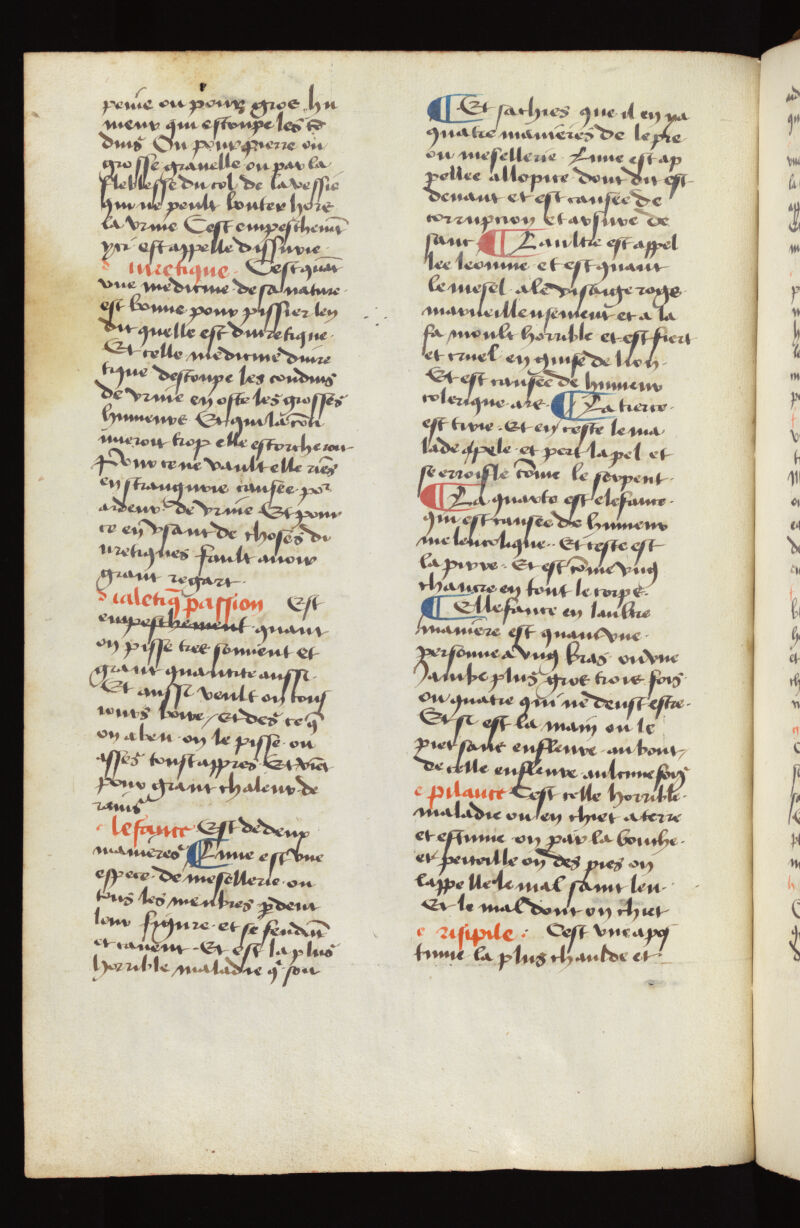 peine ou pour gros hu
meur qui estoupe les cō
duis Ou pour pierre ou
grosse grauelle ou par la
fleblesse du col de la vessie
qui ne peult bouter hors
la vrine Cest empeschemēt
yci est appelle dissurie
diuretique. Cest quāt
vne medicine de sa nature
est bonne pour pissier len
dit quelle est diuretique
Et celle medicine diure
tique destoupe les conduis
de vrine en oste les grosses
humeurs Et qui la cōti
nueroit trop elle escorcheroit
Pour ce ne vault elle riēs
en stranguirie causee por
ardeur de vrine Et pour
ce en vsant de choses di
uretiques fault auoir
grant regart
dialetiq̄ passion Est
empeschement quant
on pisse tres souuent et
grant quantite aussi
Et aussi veult on tous
iours boire / et des ce q̄
on a beu on le pisse ou
asses toust appres Et viēt
pour grant chaleur de
rains
elefance Est de deux
manieres ¶ Lune est vne
espece de mesellerie ou
tous les menbres perdent
leur figure et se fendēt
et cauent Et est la plus
horrible maladie q̄ soit
¶ Et sachies que il en ya
quatre manieres de lepre
ou mesellerie Lune est ap
pellee allopice dont dit est
deuant et est causee de
corrupcion et arsure de
sanc ¶ Laultre est appel
lee leonine et est quant
le mesel a le visaige roge
merueilleusement et a la
fa moult horrible et est fiert
et cruel en guise de lion
Et est causee de humeur
colerique arse ¶ La tierce
est tirie. Et en ceste le ma
lade pele et pert la pel et
se erroisle cōme le serpent
¶ La quarte est elefance
qui est causee de humeur
melencolique. Et ceste est
la pire. Et est cōme vng
chancre en tout le corps
¶ Ellefance en laultre
maniere est quant vne
personne a vng bras ou vne
jambe plus gros trois fois
ou quatre qui ne deust estre
Et si est la main ou le
piet sans enfleure au bout
de celle enfleure aulcune foiz
epilance Cest celle horrible
maladie ou en chiet a terre
et escume on par la bouche
et peiteille on des pies on
lappelle le mal saint leu
Et le mal dont on chiet
erisipile: Cest vne apos
tume la plus chaulde et